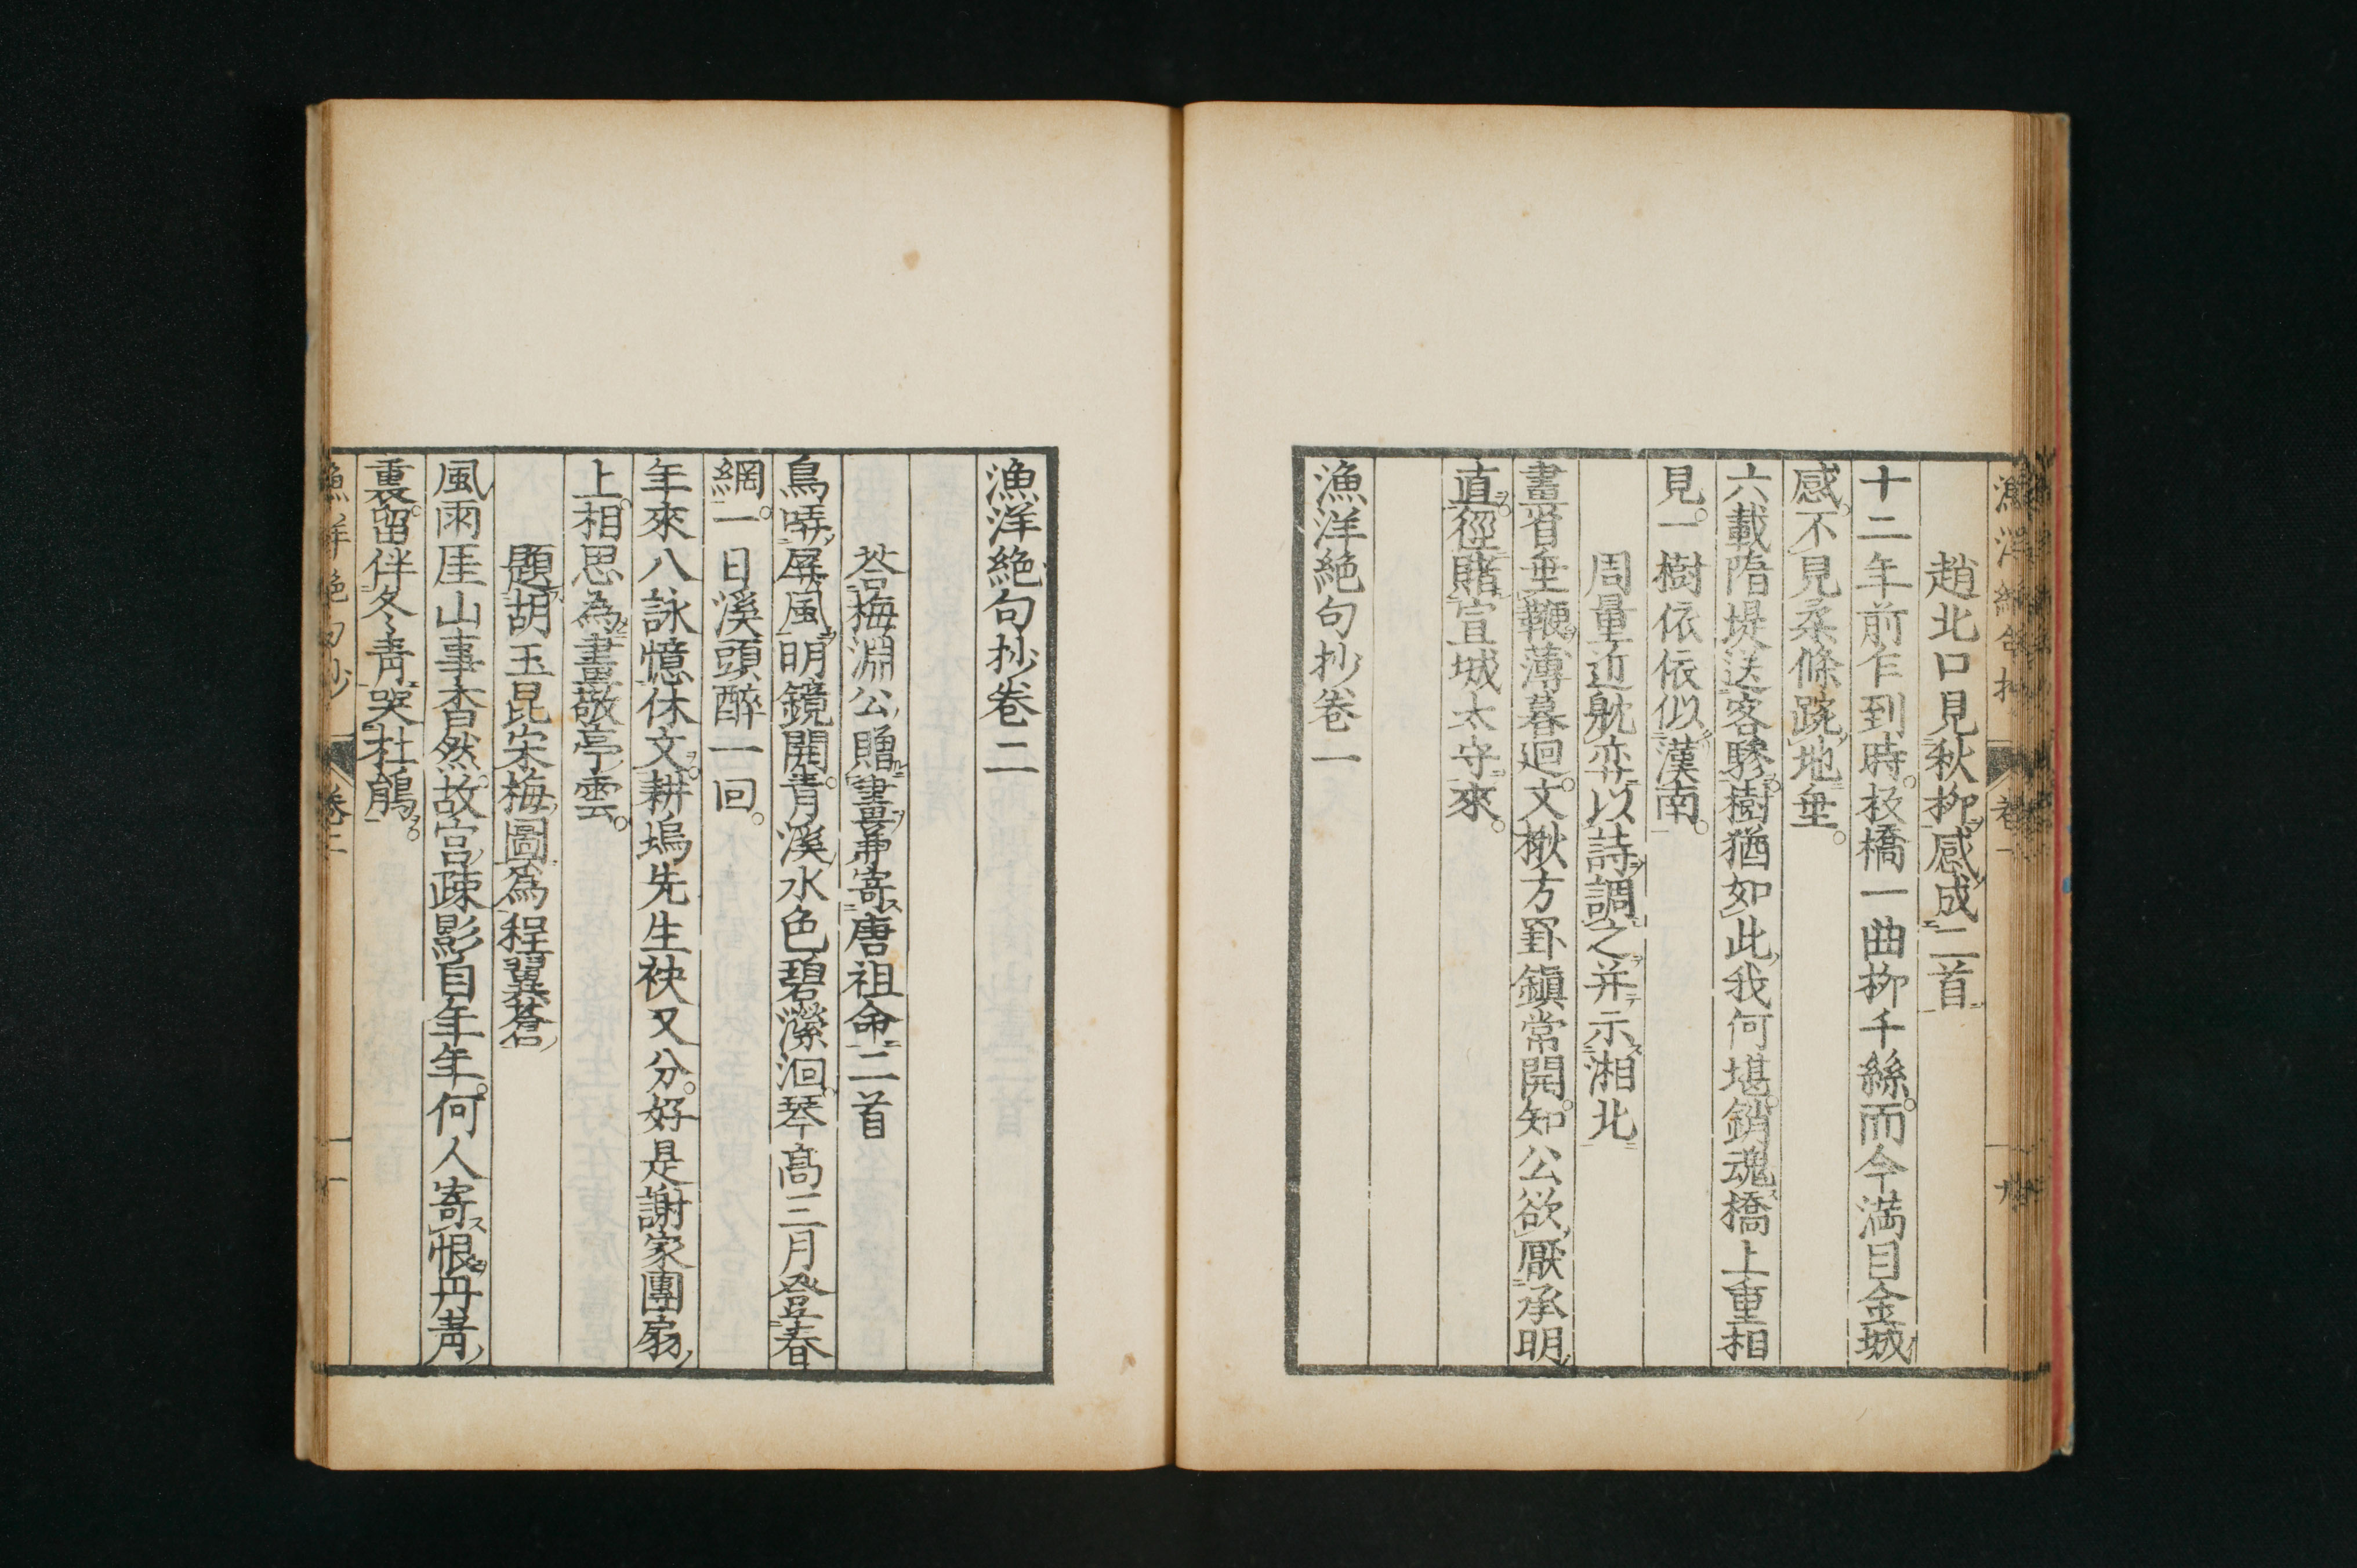 趙北口見秋柳感成二首
十二年前乍到時。板橋一曲柳千絲。而今滿目金城
感。不見柔條踠地垂。
六載隋堤送客驂。樹猶如此我何堪。銷魂橋上重相
見。一樹依依似漢南。
周量近躭弈以詩調之并示湘北
畫省垂鞭薄暮迴。文楸方罫鎮常開。知公欲厭承明
直。徑賭宣城太守來。
漁洋絕句抄卷一
漁洋絕句抄卷二
荅梅淵公贈畫兼寄唐祖命二首
鳥嘵屏風明鏡開。青溪水色碧瀠洄。琴高三月登春
網。一日溪頭醉一回。
年來八詠憶休文。耕塢先生袂又分。好是謝家團扇
上。相思為畫敬亭雲。
題胡玉昆宋梅圖為程翼蒼
風雨厓山事杳然。故宮疎影自年年。何人寄恨丹青
裏。留伴冬青哭杜鵑。
漁洋絕句抄 卷二 一